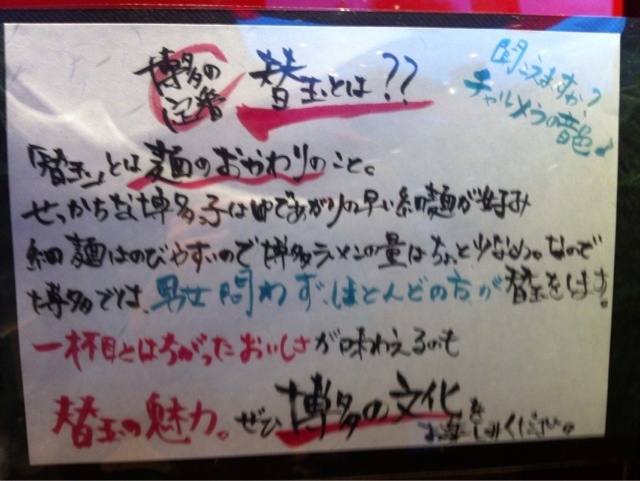 博多の
定番
替玉とは??
聞こえますか?
チャルメラの音色♪
「替玉」とは麺のおかわりのこと。
せっかちな博多子はゆであがりの早い細麺が好み
細麺はのびやすいので博多ラーメンの量はちょっと少なめっ。なので
博多では、男女問わず、ほとんどの方が替玉をします。
一杯目とはちがったおいしさが味わえるのも
替玉の魅力。ぜひ博多の文化を
お楽しみください。